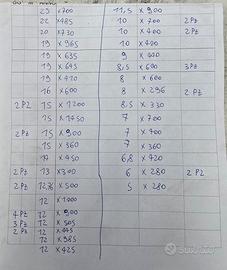 23 x 700
22 x 485
20 x 730
19 x 965
19 x 635
19 x 645
19 x 420
16 x 600
2 PZ 15 x 1200
15 x 1450
2 Pz 15 x 900
15 x 360
14 x 450
2 Pz 13 x 300
2 Pz x 500
12 x 1000
4 Pz 12 x 900
3 Pz 12 x 505
2 Pz 12 x 445
12 x 985
12 x 425
11,5 x 900
10 x 700 2 Pz
10 x 400 2 Pz
10 x 400
9 x 400
8,5 x 600 3 Pz
8 x 600
8 x 296 2 Pz
8,5 x 330
7 x 700
7 x 400
7 x 360
6,8 x 420
6 x 280 2 PZ
5 x 280
subito